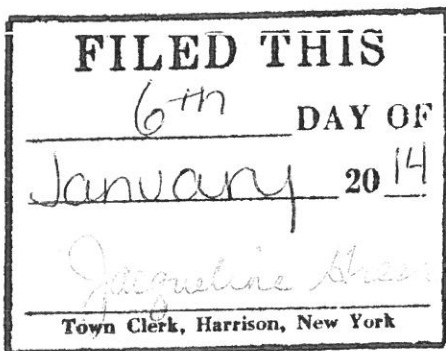 FILED THIS
6th DAY OF
January 2014
Jacqueline
Town Clerk, Harrison, New York